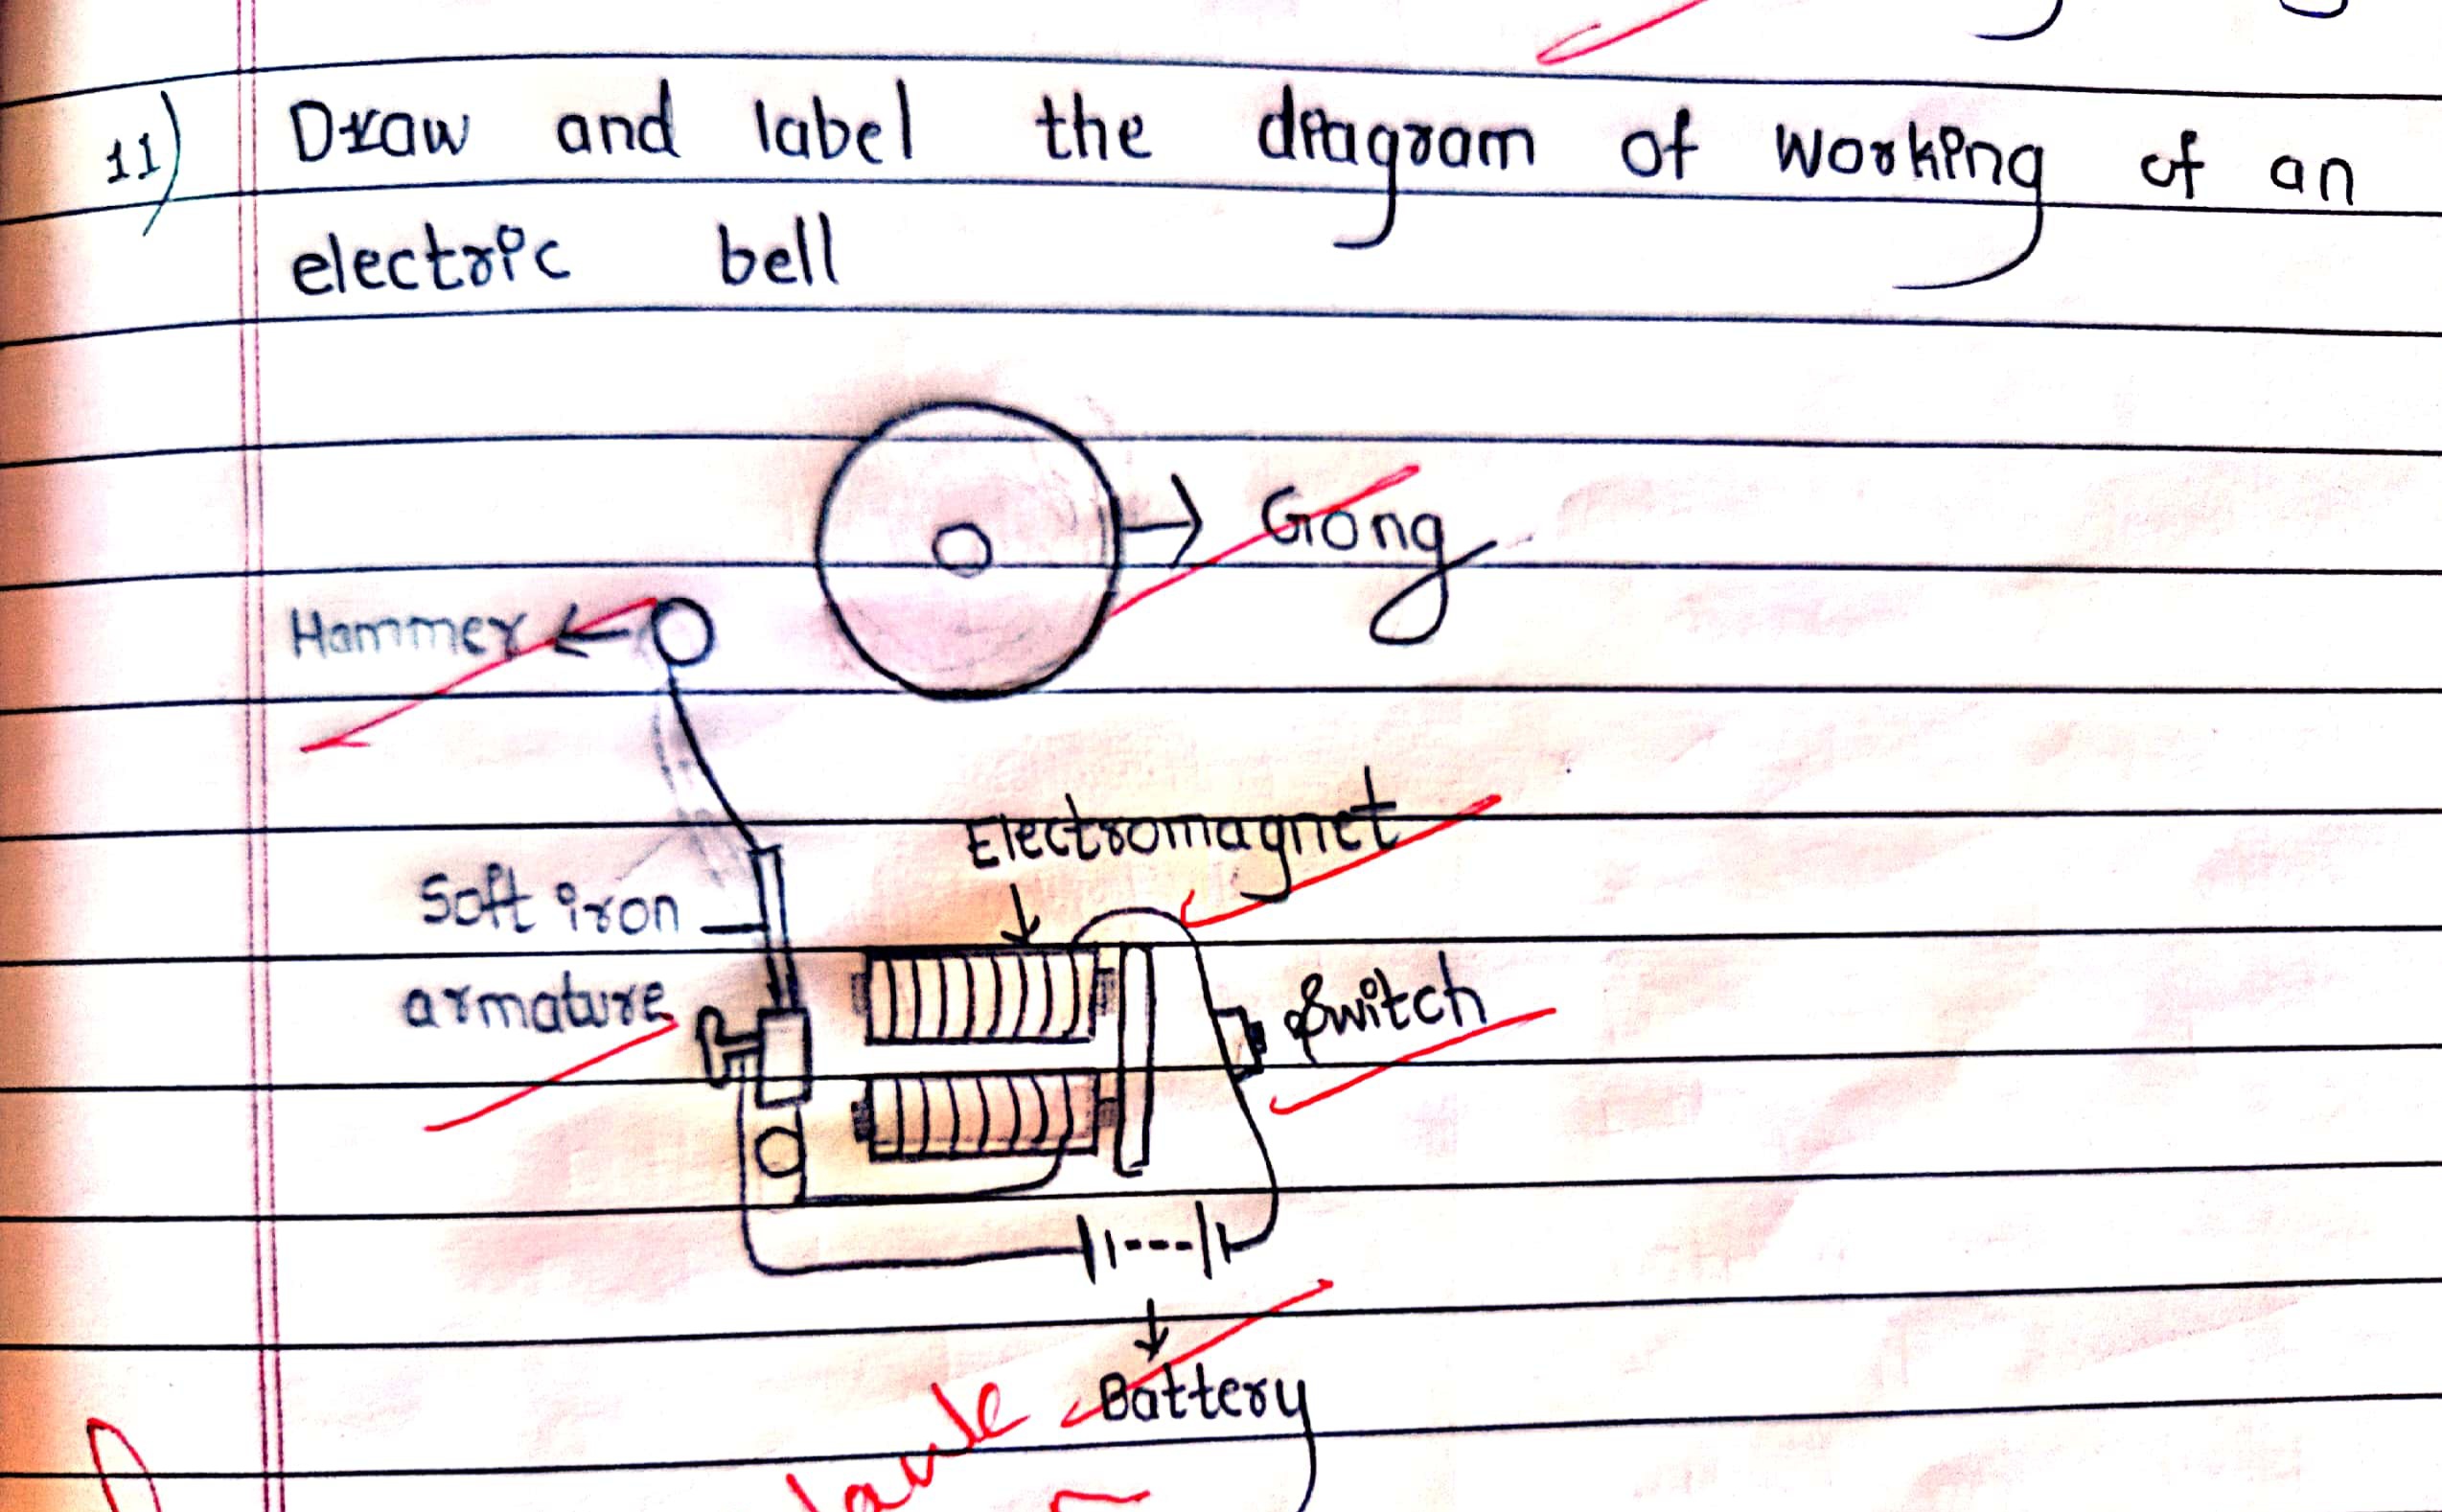 11) Draw and label the diagram of working of an
electric bell
Gong
Hammer
Electromagnet
Soft iron
armature
Switch
Battery